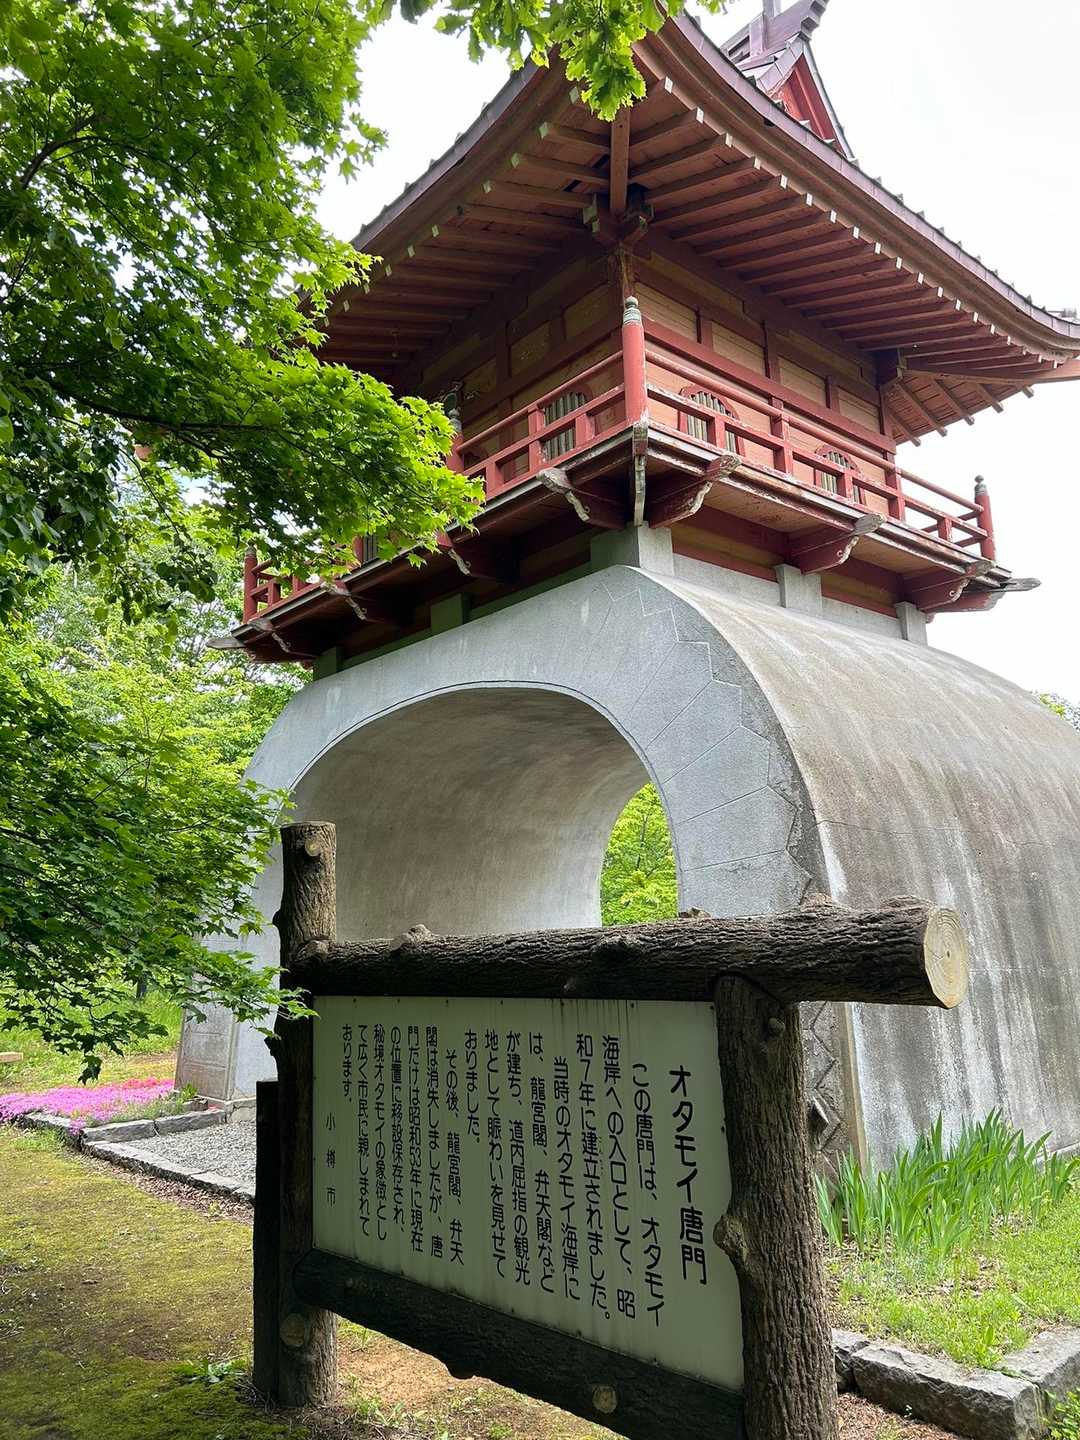 オタモイ唐門
この唐門は、オタモイ
海岸への入口として、昭
和7年に建立されました。
当時のオタモイ海岸に
は、龍宮閣、弁天閣など
が建ち、道内屈指の観光
地として賑わいを見せて
おりました。
その後、龍宮閣、弁天
閣は消失しましたが、唐
門だけは昭和53年に現在
の位置に移設保存され、
秘境オタモイの象徴とし
て広く市民に親しまれて
おります。
小樽市